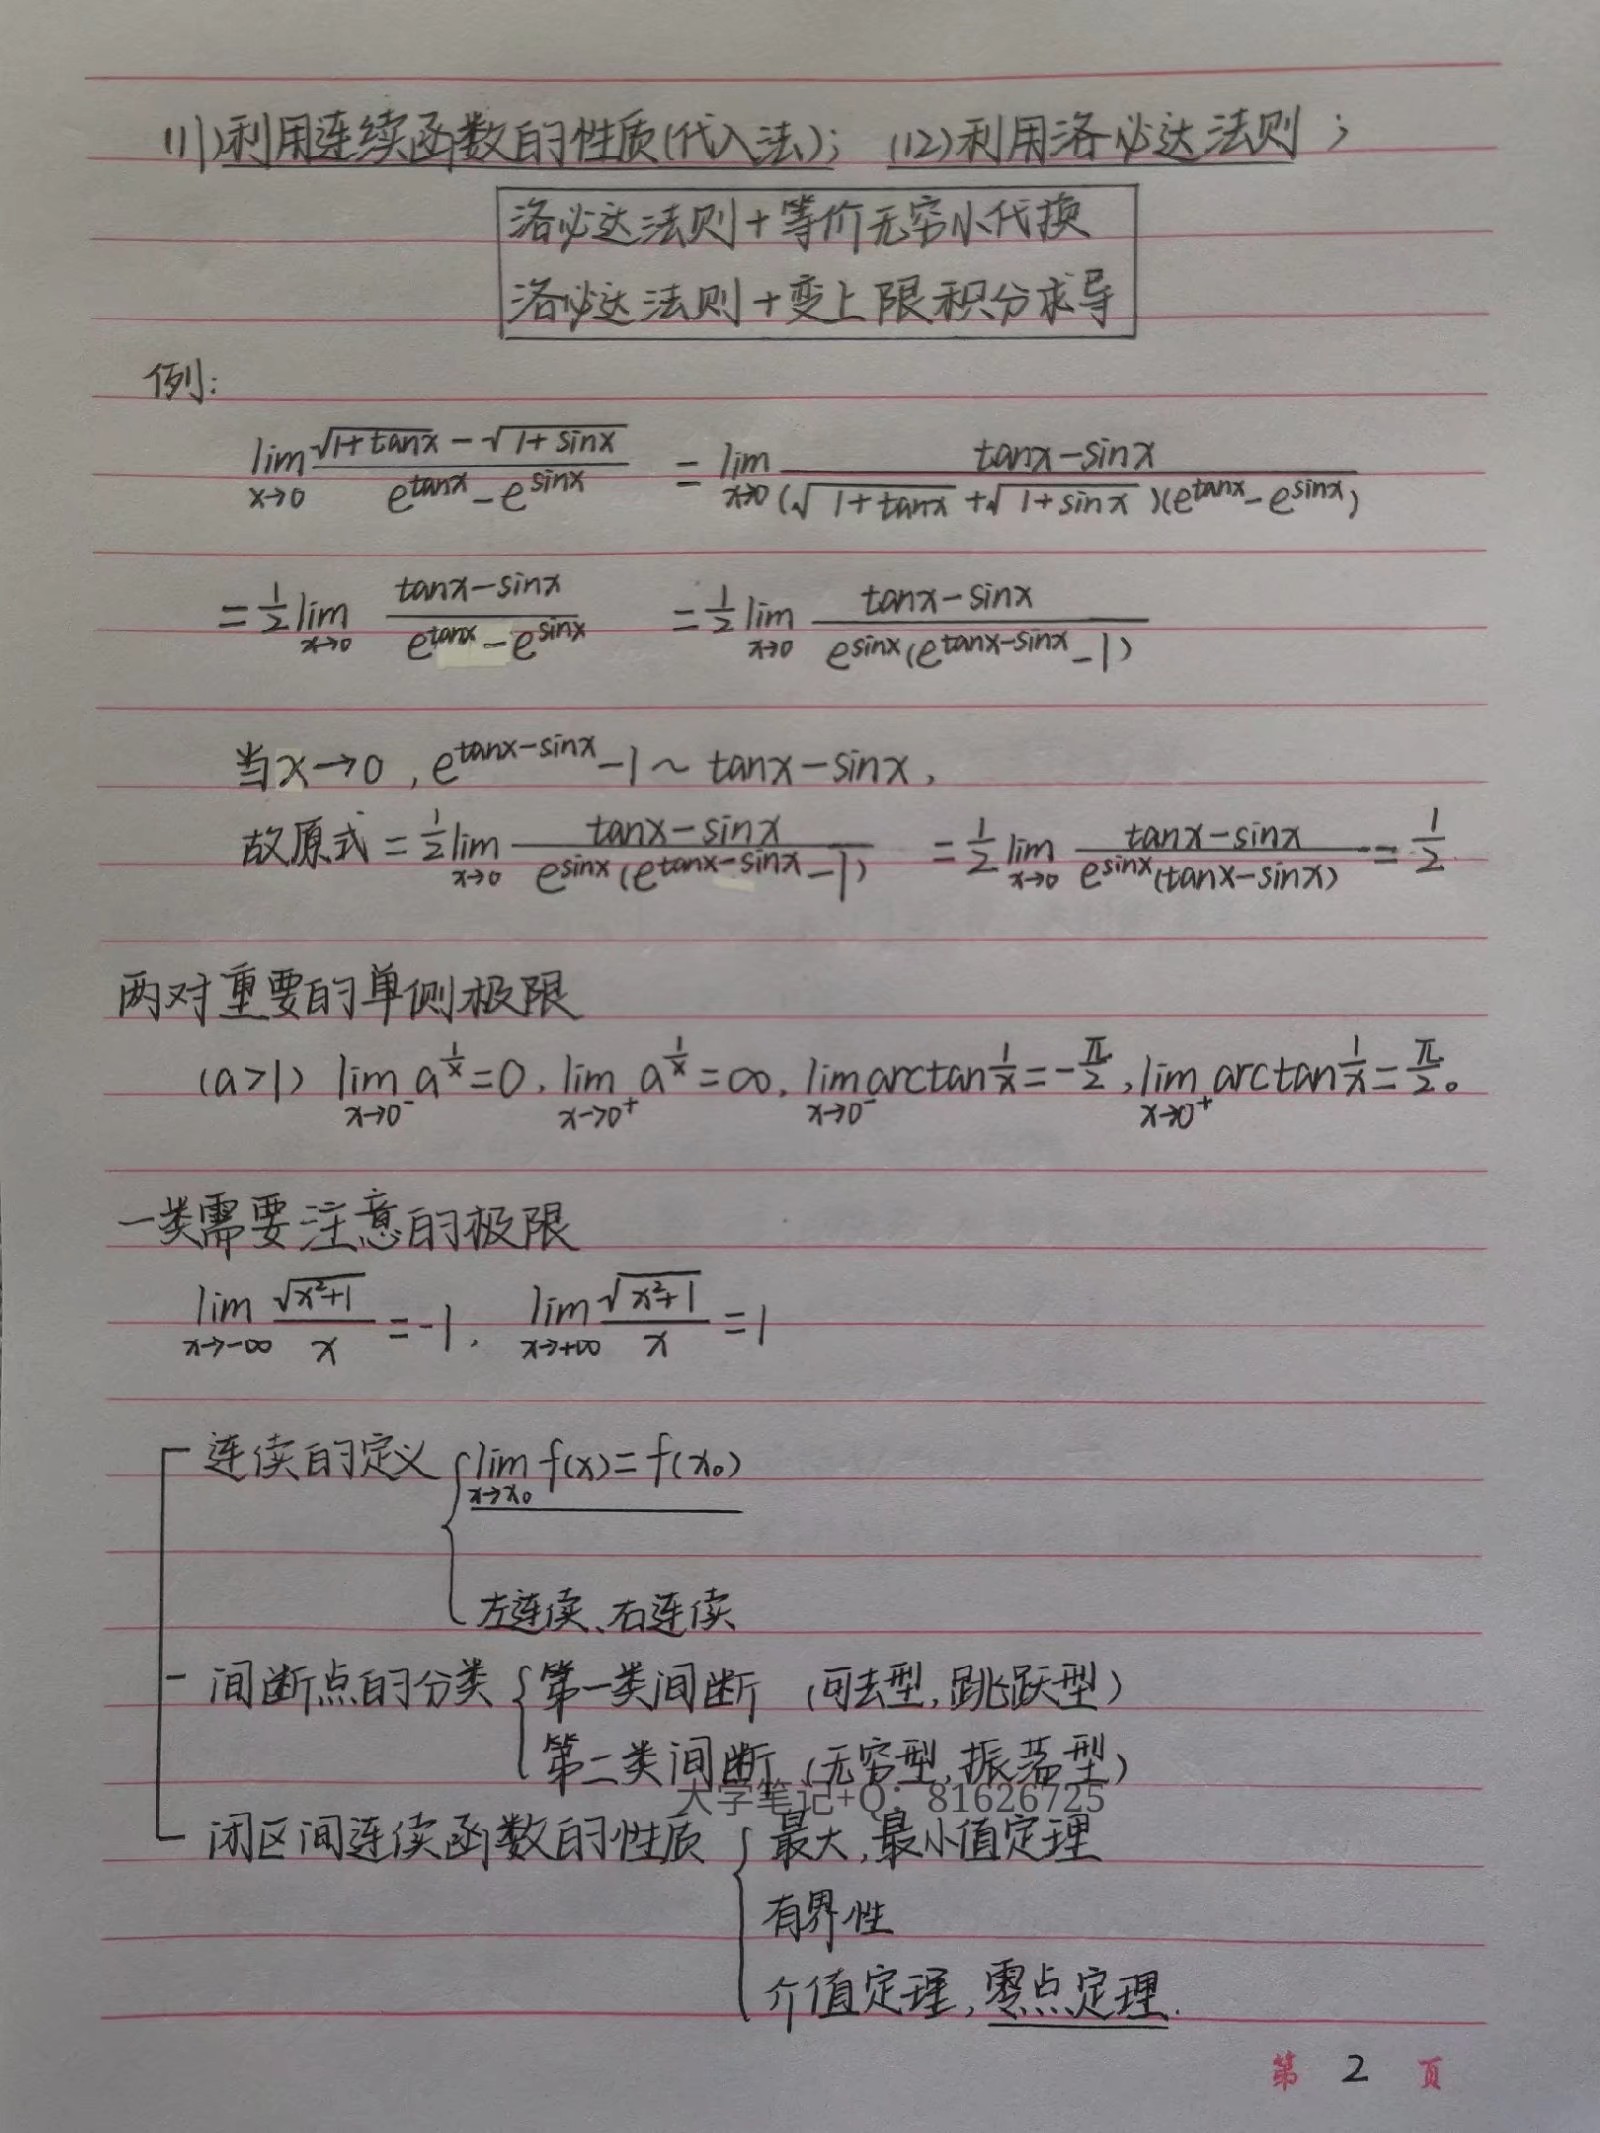 (11)利用连续函数的性质(代入法); (12)利用洛必达法则;
洛必达法则+等价无穷小代换
洛必达法则+变上限积分求导
例:
lim x→0 (√(1+tanx) - √(1+sinx))/(e^tanx - e^sinx) = lim x→0 (tanx-sinx)/((√(1+tanx)+√(1+sinx))(e^tanx - e^sinx))
= 1/2 lim x→0 (tanx-sinx)/(e^tanx - e^sinx) = 1/2 lim x→0 (tanx-sinx)/(e^sinx(e^(tanx-sinx) - 1))
当x→0, e^(tanx-sinx) - 1 ~ tanx-sinx,
故原式 = 1/2 lim x→0 (tanx-sinx)/(e^sinx(e^(tanx-sinx) - 1)) = 1/2 lim x→0 (tanx-sinx)/(e^sinx(tanx-sinx)) = 1/2
两对重要的单侧极限
(a>1) lim x→0⁻ a^(1/x) = 0, lim x→0⁺ a^(1/x) = ∞, lim x→0⁻ arctan 1/x = -π/2, lim x→0⁺ arctan 1/x = π/2。
一类需要注意的极限
lim x→-∞ √(x²+1)/x = -1, lim x→+∞ √(x²+1)/x = 1
连续的定义 lim x→x₀ f(x) = f(x₀)
左连续、右连续
间断点的分类 第一类间断 (可去型, 跳跃型)
第二类间断 (无穷型, 振荡型)
大学笔记+Q: 81626725
闭区间连续函数的性质 最大, 最小值定理
有界性
介值定理, 零点定理.
第 2 页